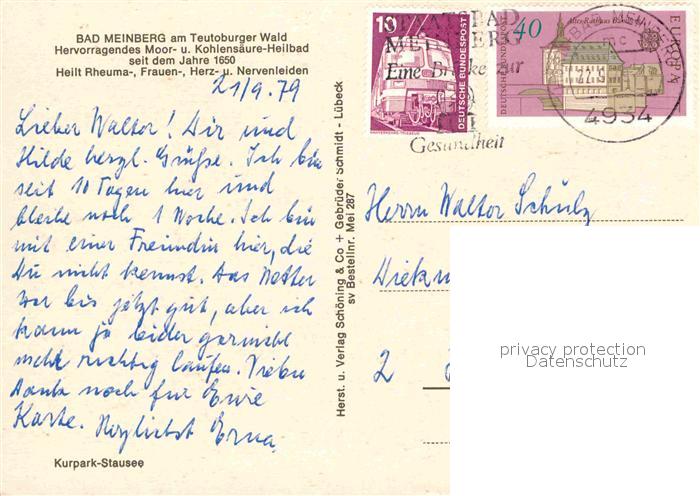 BAD MEINBERG am Teutoburger Wald
Hervorragendes Moor- u. Kohlensäure-Heilbad
seit dem Jahre 1650
Heilt Rheuma-, Frauen-, Herz- u. Nervenleiden
21/9.79
Lieber Walter! Dir und
Hilde herzl. Grüße. Ich bin
seit 10 Tagen hier und
bleibe noch 1 Woche. Ich bin
mit einer Freundin hier, die
Du nicht kennst. Das Wetter
war bis jetzt gut, aber ich
kann ja leider garnicht
mehr richtig laufen. Vielen
Dank noch für Eure
Karte. Herzlichst Erna
Kurpark-Stausee
Herst. u. Verlag Schöning & Co + Gebrüder Schmidt - Lübeck
sv Bestellnr. Mei 287
10
DEUTSCHE BUNDESPOST
40
Altes Rathaus
EUROPA
DEUTSCHE BUNDESPOST
STAATSBAD
MEINBERG
Eine zur
Gesundheit
4934
Herrn Walter Schulz
2
privacy protection
Datenschutz